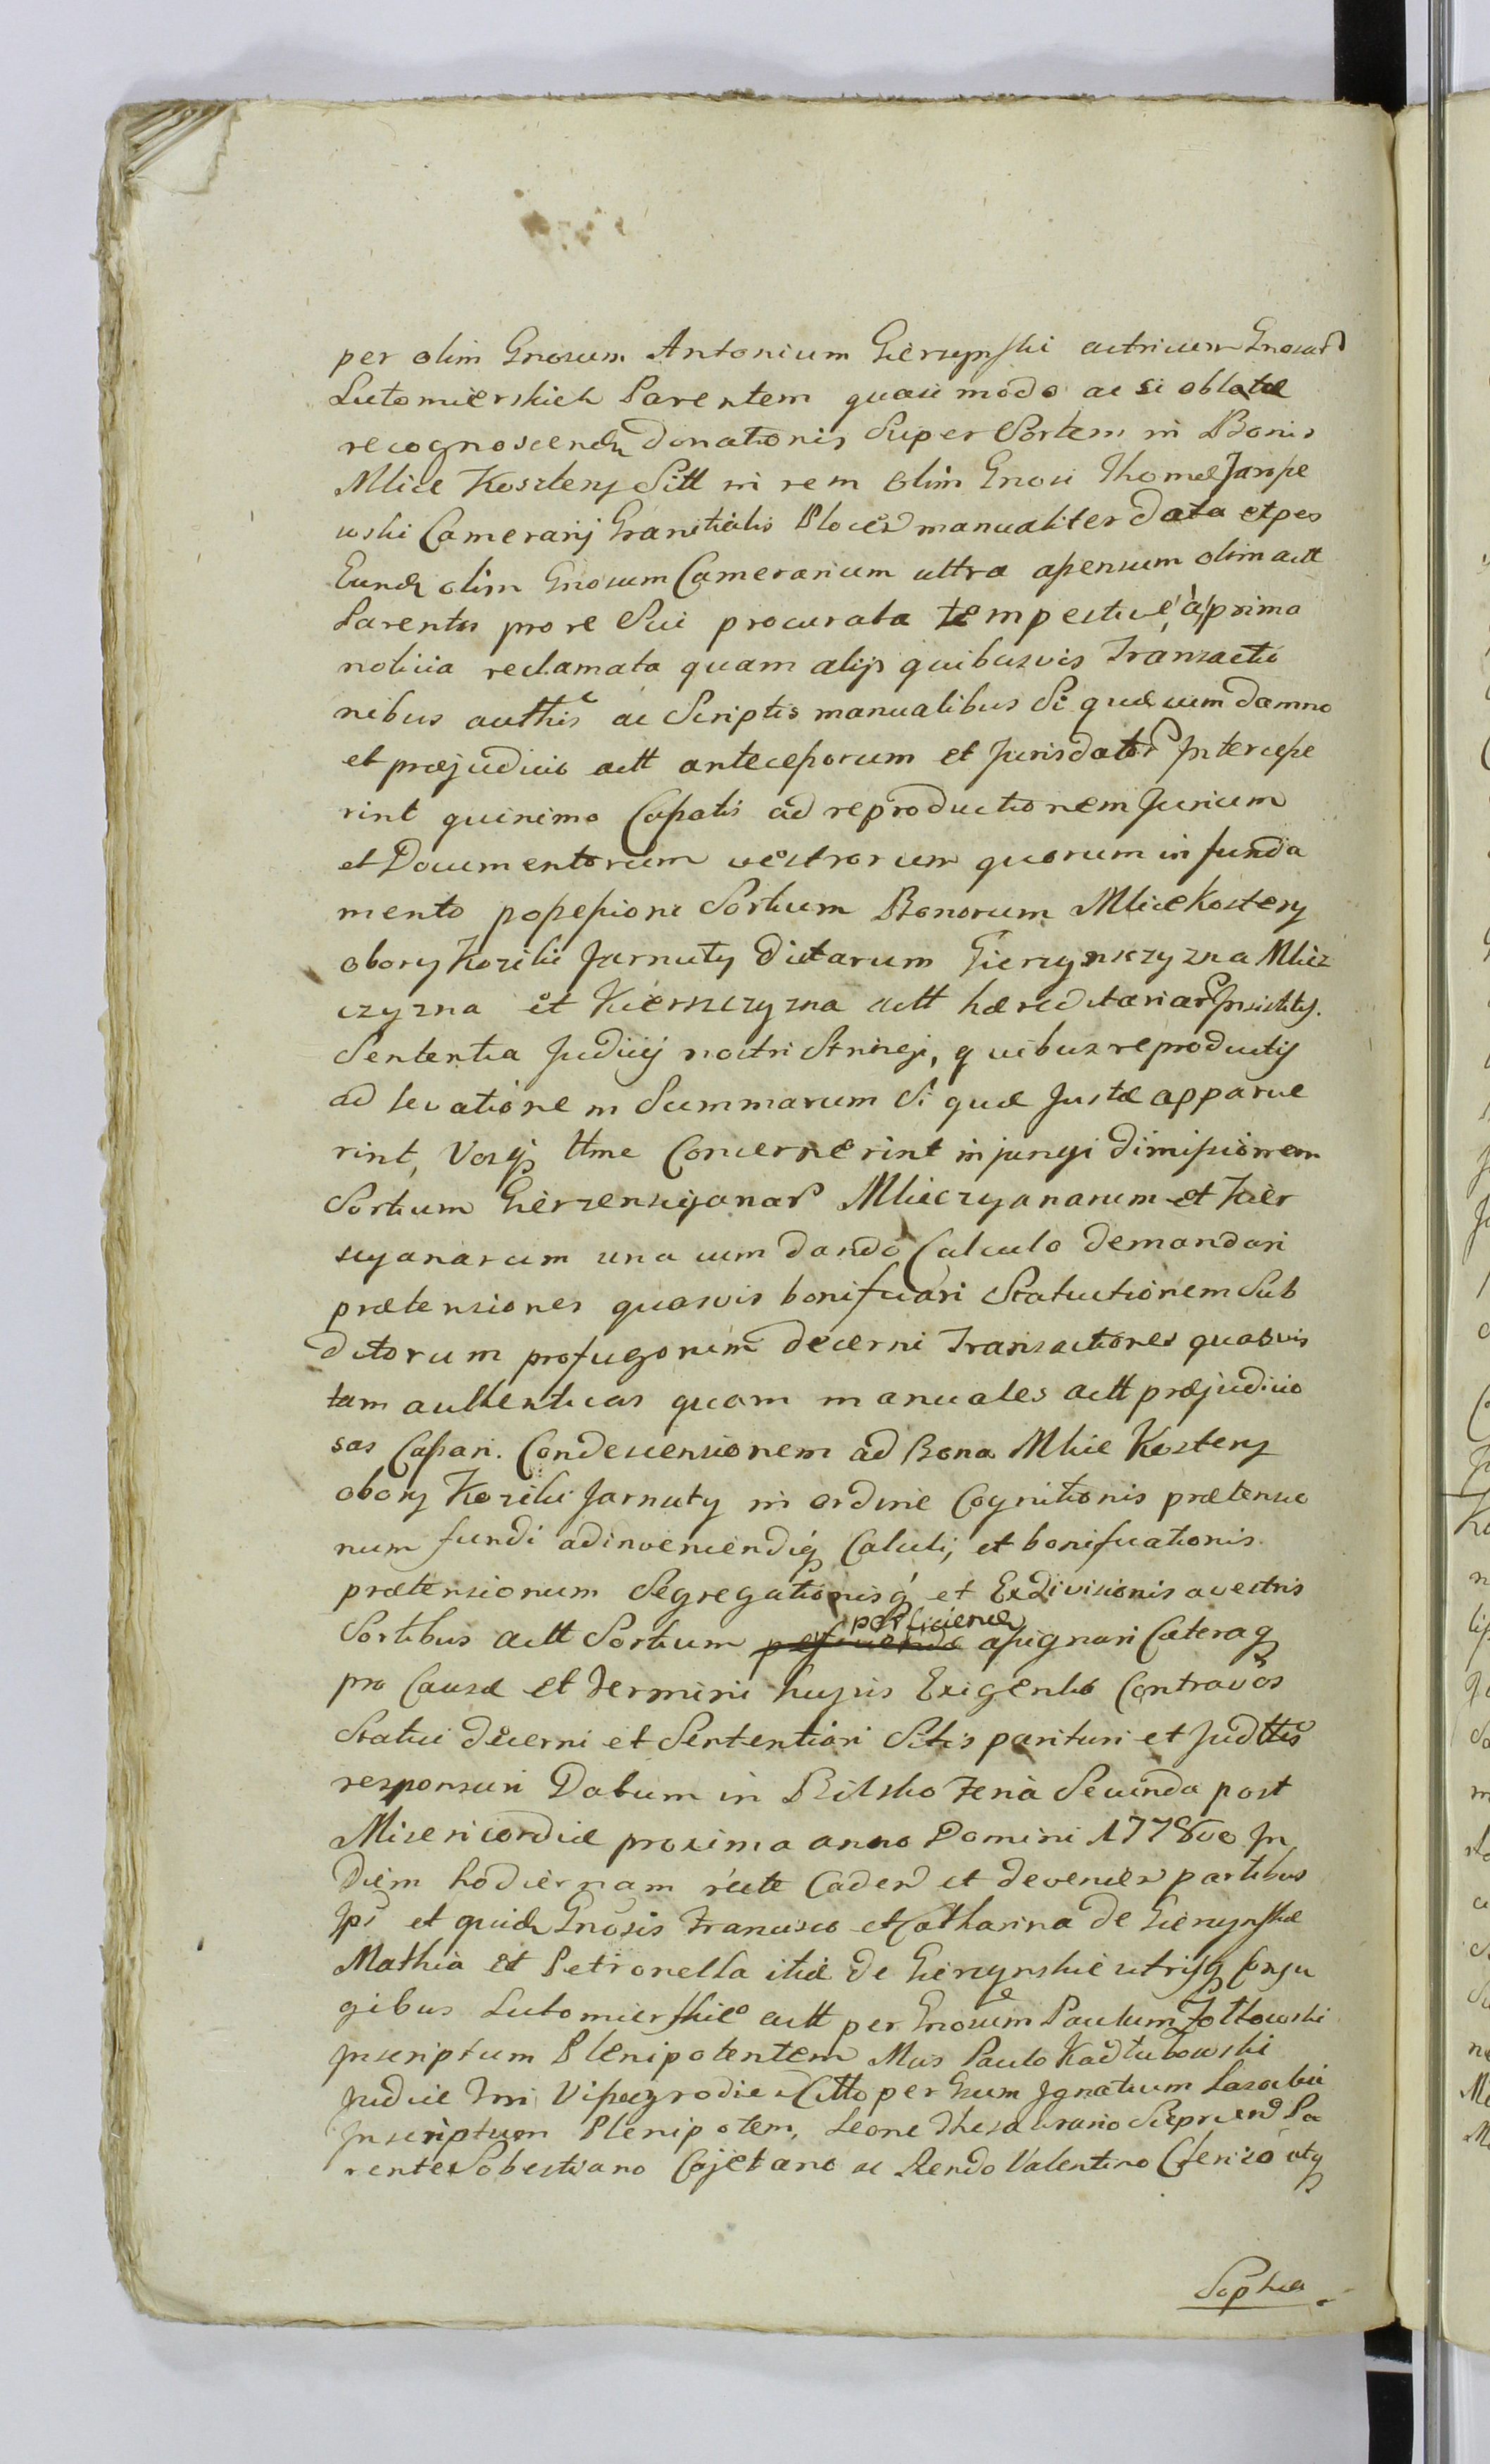 per olim Gnosum Antonium Gierzynski actricum Gnosar
Lutomierskich Parentem quasi modo ac si oblatæ
recognoscend donationis Super Sortem in Bonis
Mlice Kostery Sitt in rem olim Gnosi Thomæ Jaroße
wski Camerarij Granitialis Plocen manualiter data et per
Eund olim Gnosum Camerarium ultra aßensum olim actt
Parentis pro re Sui procurata tempestive, à primo
noticia reclamata quam alijs quibusvis Transactio
nibus authis ac Scriptis manualibus Si quæ cum damno
et præjudicio actt anteceßorum et Jurisdator Interceße
rint quinimo Caßatis ad reproductionem Jurium
et Documentorum vestrorum quorum in funda
mento poßeßioni Sortium Bonorum Mlice Kostery
obory Kozilii Jarnuty dictarum Gierzynszczyzna Mliz
czyzna et Kierszczyzna actt hæreditariar Insistitis.
Sententia Judicij nostri Stringi, quibus reproductis
ad levationem Summarum Si quæ Justæ apparue
rint, Vosq ttme Concernerint injungi dimißionem
Sortium Gierzensciyanar Mlieczyanarum et Kier
scyanarum una cum dando Calculo demandari
prætensiones quasvis bonificari Statuitionem Sub
ditorum profugorum decerni Transactiones quasvis
tam authenticas quam manuales actt præjudicio
sas Caßari. Condescensionem ad Bona Mlice Kostery
obory Kozilii Jarnuty in ordine Cognitionis prætensio
num fundi adinveniendiq Calculi, et bonificationis
prætensionum Segregationisq et Exdivisionis a vestris
Sortibus actt Sortium perficiend aßignari Cæteraq
pro Causæ et Termini hujus Exigentia Contra vos
Statui decerni et Sententiari Sitis parituri et Judttr
responsuri Datum in Bilsko Feria Secunda post
Misericordiæ proxima anno Domini 1778vo In
Diem hodiernam rite Caden et devenien partibus
Ips et quid Gnosis Francisco et Catharina de Gierzynskie
Mathia et Petronella itid de Gierzynskie utrisq Conju
gibus Lutomierskie actt per Gnosum Paulum Zołtowski
Inscriptum Plenipotentem Mcis Paulo Kadłubowski
Judice Trri Vißogrodien Citto per Gsum Ignatium Lasocki
Inscriptum Plenipotem, Leone Thesaurario Sieprcen Pa
rente Sobestiano Cajetano ac Rendo Valentino Clerico atq
Sophia